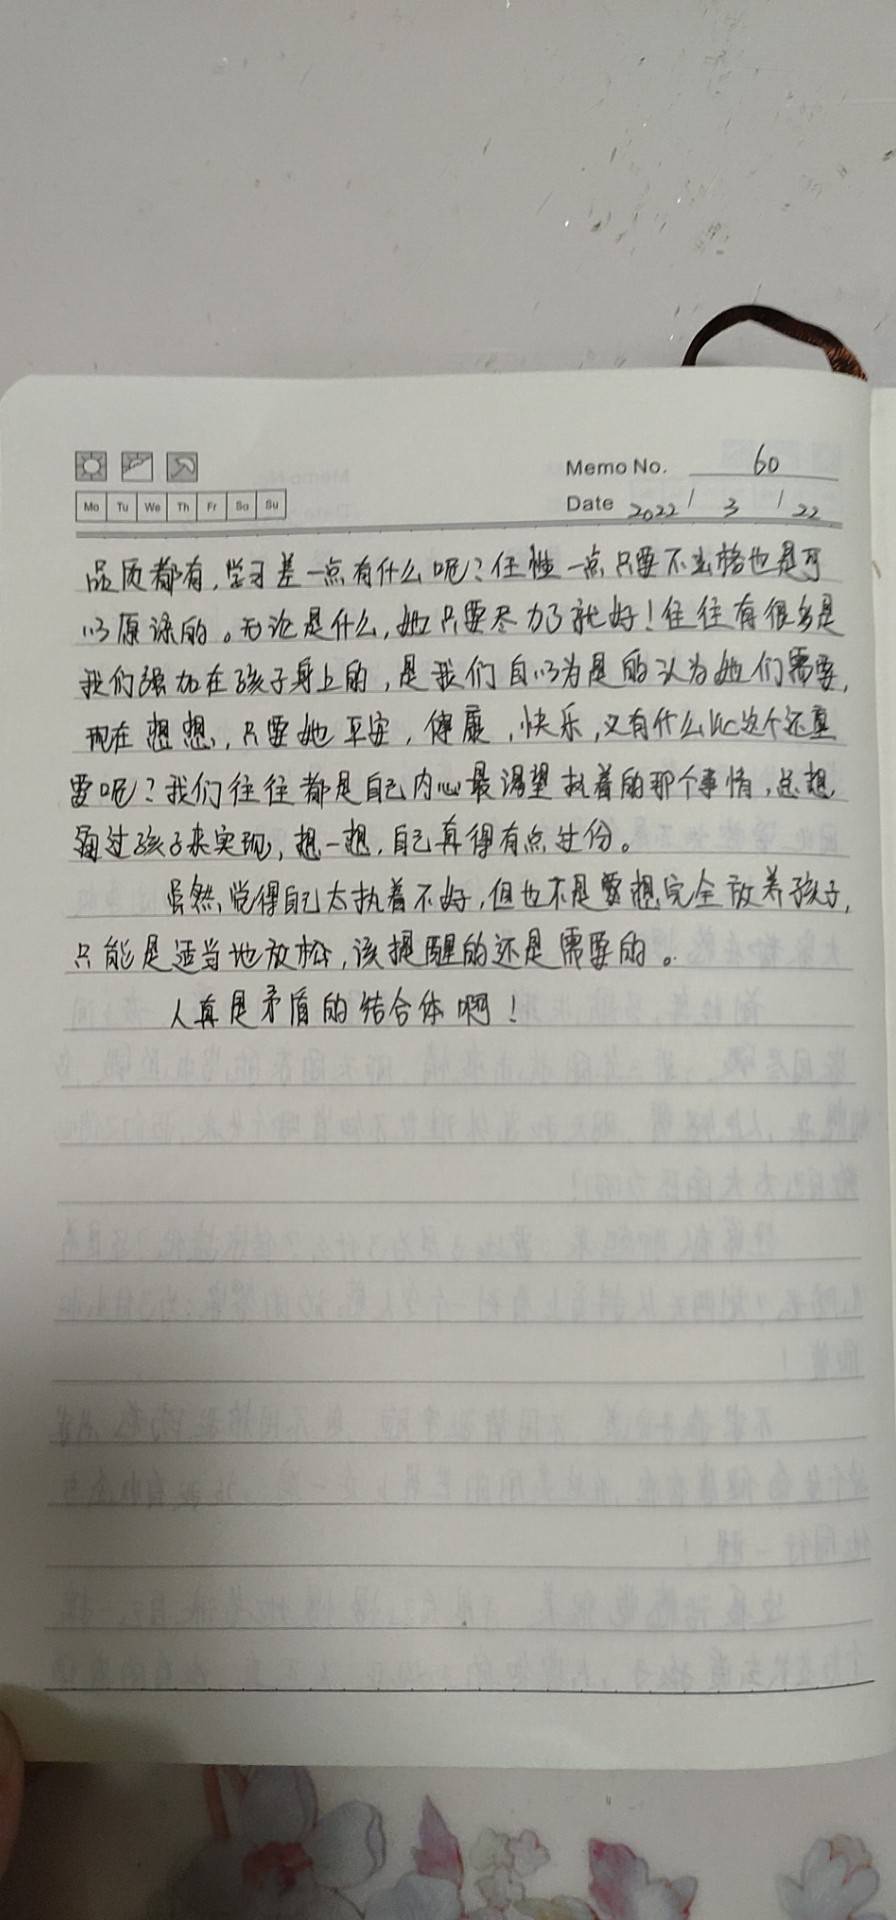 Memo No. 60
Mo Tu We Th Fr Sa Su
Date 2022 / 3 / 22
品质都有,学习差一点有什么呢?任性一点只要不出格也是可
以原谅的。无论是什么,她只要尽力了就好!往往有很多是
我们强加在孩子身上的,是我们自以为是的认为她们需要,
现在想想,只要她平安,健康,快乐,又有什么比这个还重
要呢?我们往往都是自己内心最渴望执着的那个事情,总想
通过孩子来实现,想一想,自己真得有点过份。
虽然,觉得自己太执着不好,但也不是要想完全放养孩子,
只能是适当地放松,该提醒的还是需要的。
人真是矛盾的结合体啊!